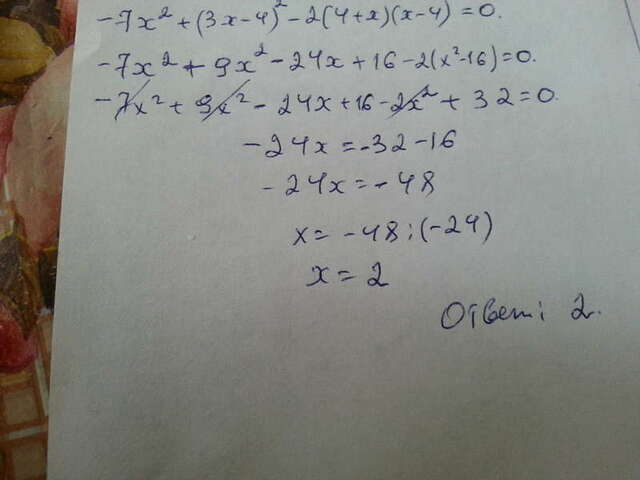 -7x² + (3x-4)² - 2(4+x)(x-4) = 0.
-7x² + 9x² - 24x + 16 - 2(x²-16) = 0.
-7x² + 9x² - 24x + 16 - 2x² + 32 = 0.
-24x = -32 - 16
-24x = -48
x = -48 : (-24)
x = 2
Ответ: 2.